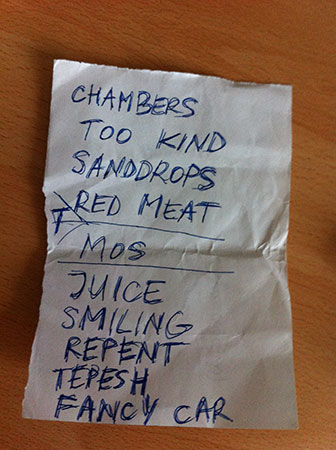 CHAMBERS
TOO KIND
SANDDROPS
RED MEAT
MOS
JUICE
SMILING
REPENT
TEPESH
FANCY CAR